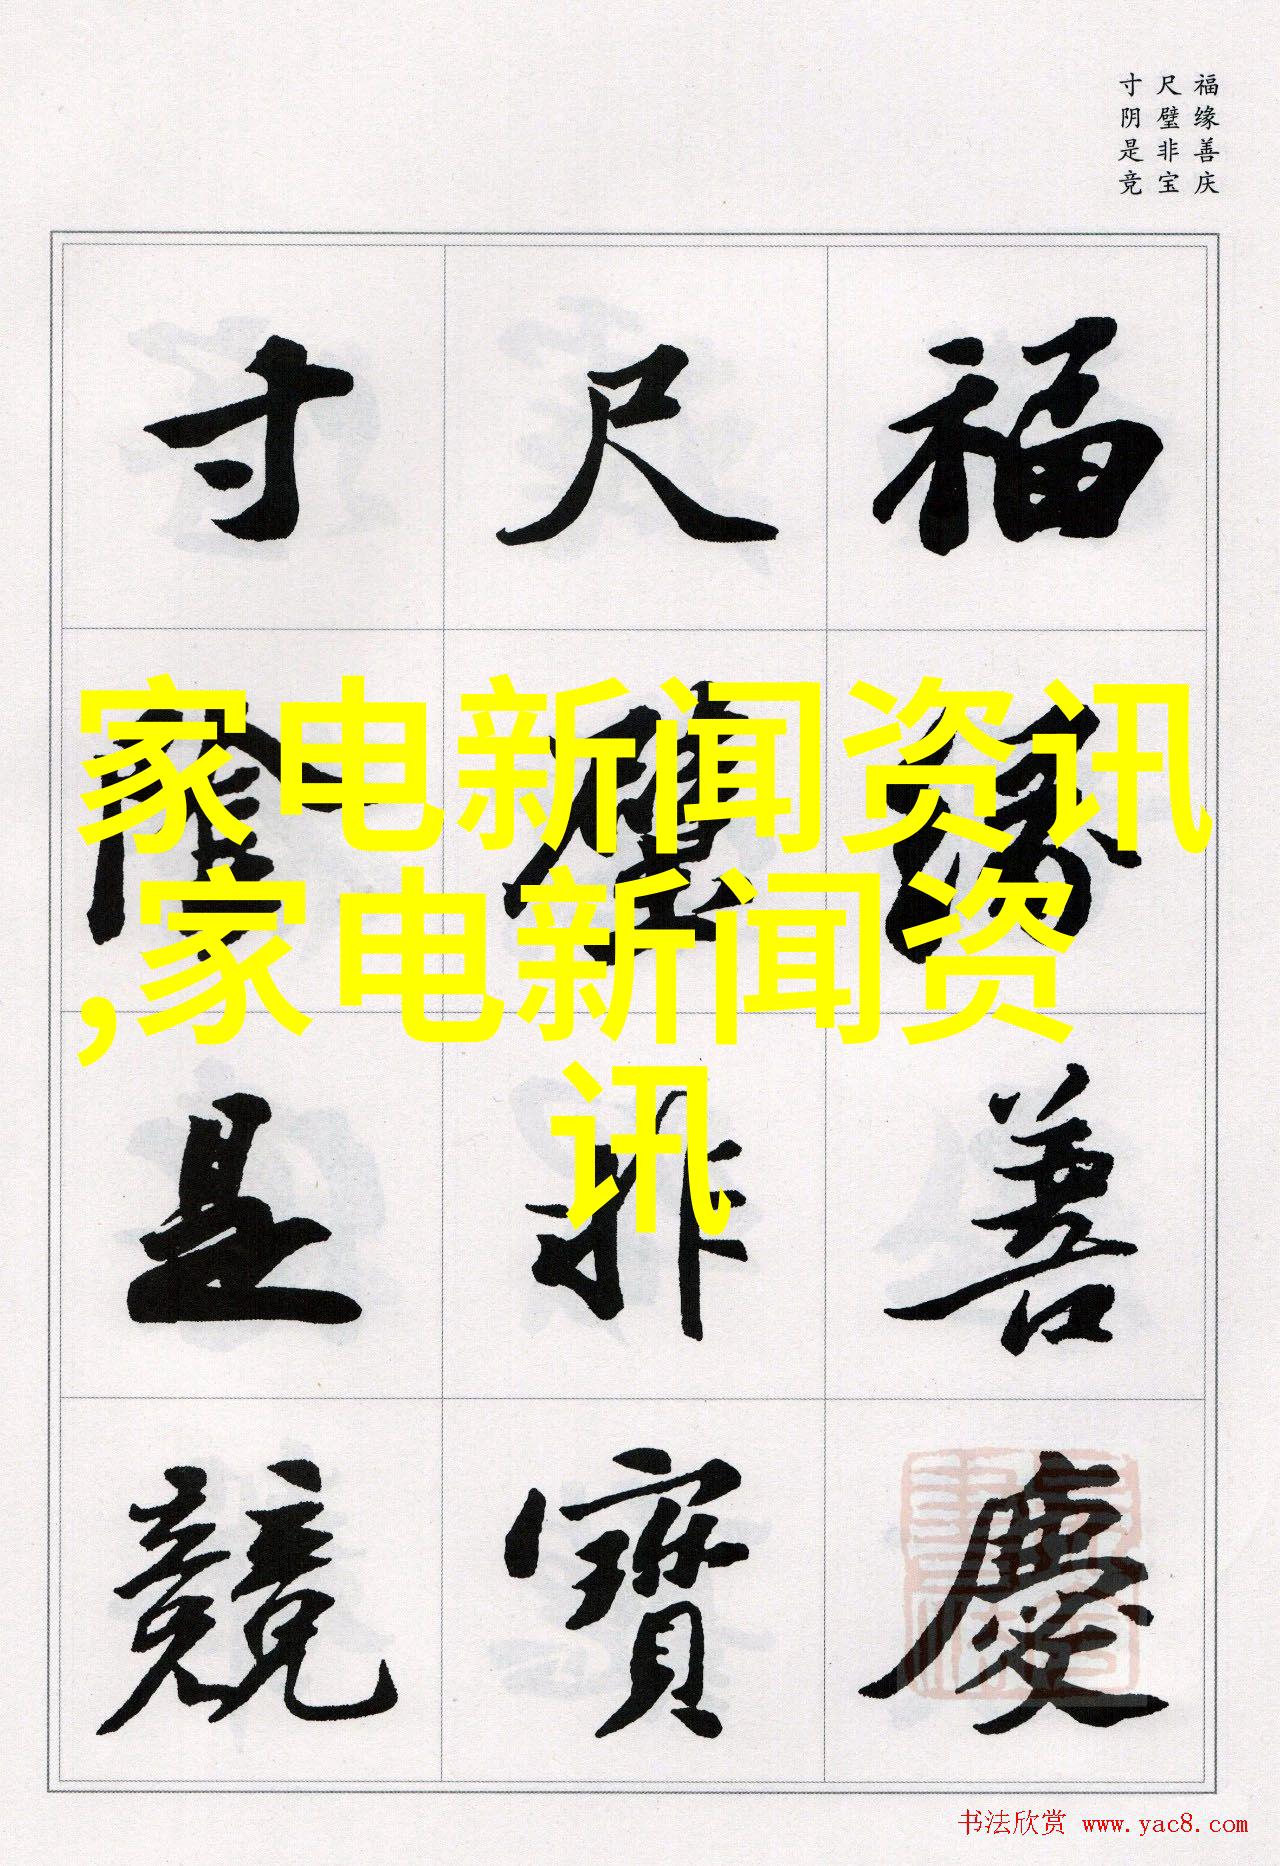 福缘善庆
尺璧非宝
寸阴是竞
福緣善慶
尺璧非寶
寸陰是競
家电新闻资讯
,家电新闻资
讯
书法欣赏 www.yac8.com